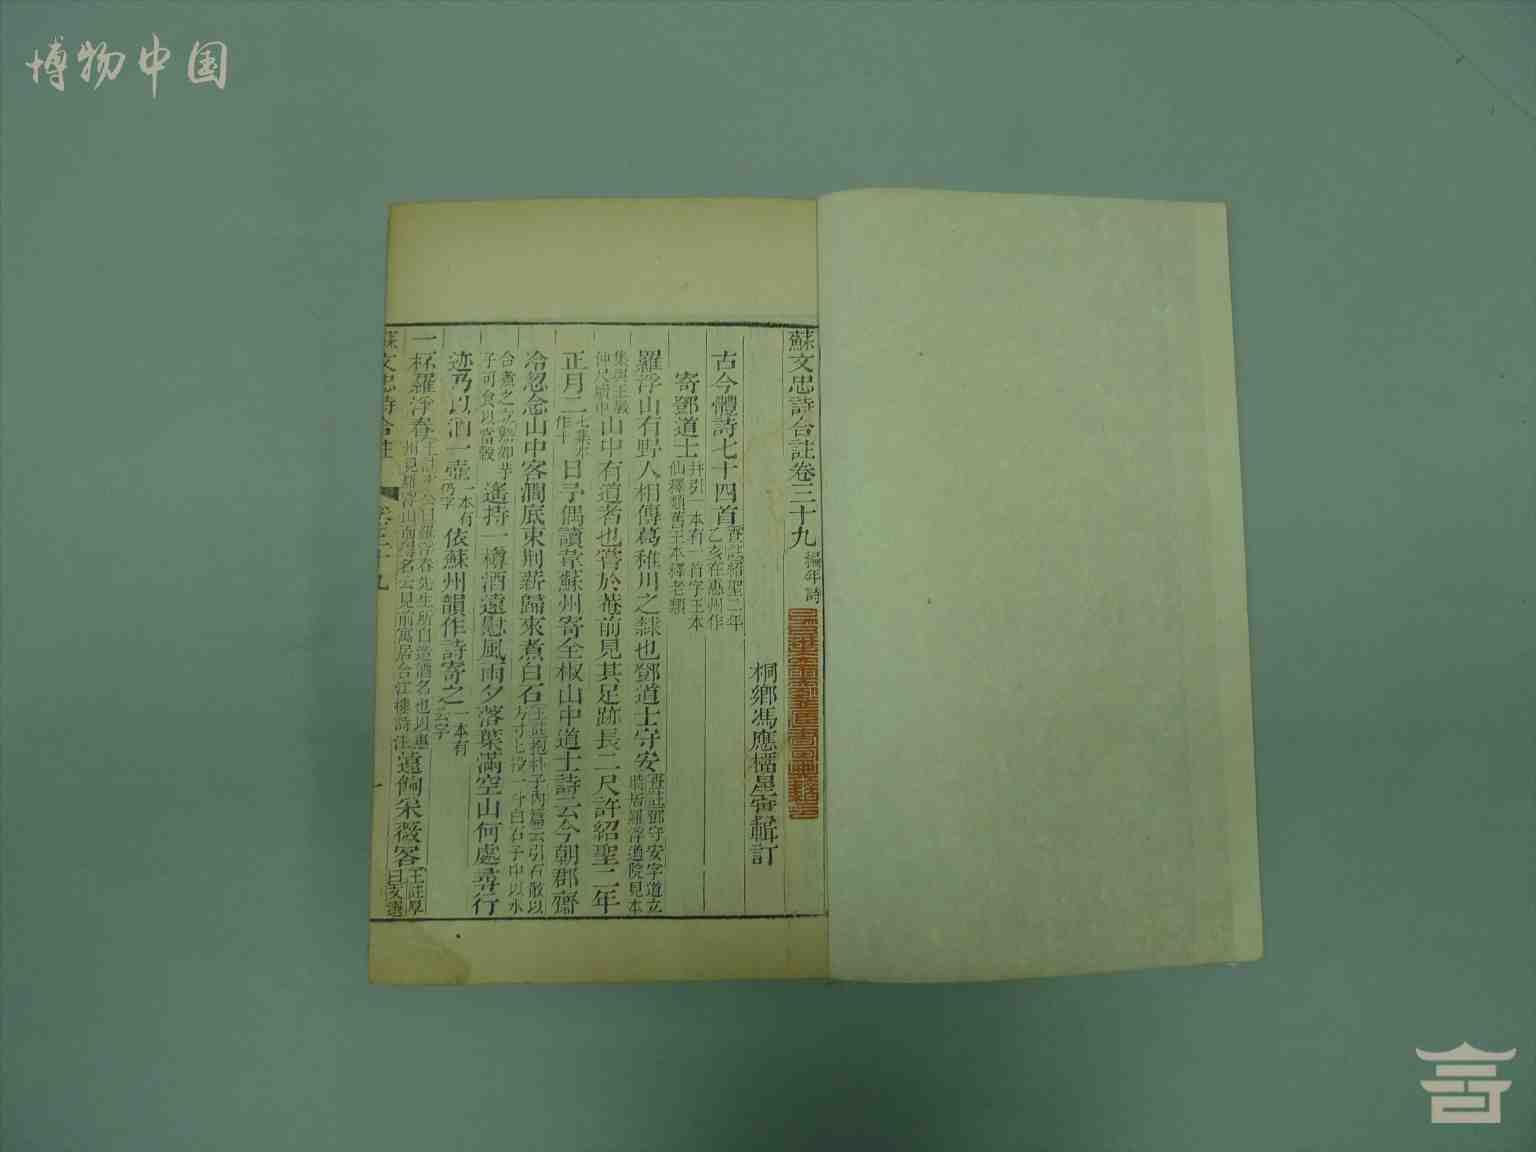 博物中国
蘇文忠詩合註卷三十九 編年詩
桐鄉馮應榴星實輯訂
古今體詩七十四首 查註紹聖二年乙亥在惠州作
寄鄧道士 并引一本有一首字王本仙釋類舊王本釋老類
羅浮山有野人相傳葛稚川之隸也鄧道士守安 查註鄧守安字道立時居羅浮道院見本
集與王敏仲尺牘中 山中有道者也嘗於菴前見其足跡長二尺許紹聖二年
正月二 七集本作十 日予偶讀韋蘇州寄全椒山中道士詩云今朝郡齋
冷忽念山中客澗底束荆薪歸來煮白石 王註抱朴子內篇云引石散以方寸匕投一斗白石子中以水
合煮之立熟如芋子可食以當穀 遙持一樽酒遠慰風雨夕落葉滿空山何處尋行
迹乃以酒一壺 一本有仍字 依蘇州韻作詩寄之 一本有云字
一杯羅浮春 王註子仁曰羅浮春先生所自造酒名也以惠州見羅浮山而得名云見前寓居合江樓詩注 遠餉采薇客 王註厚曰支遁
蘇文忠詩合註 卷三十九 一